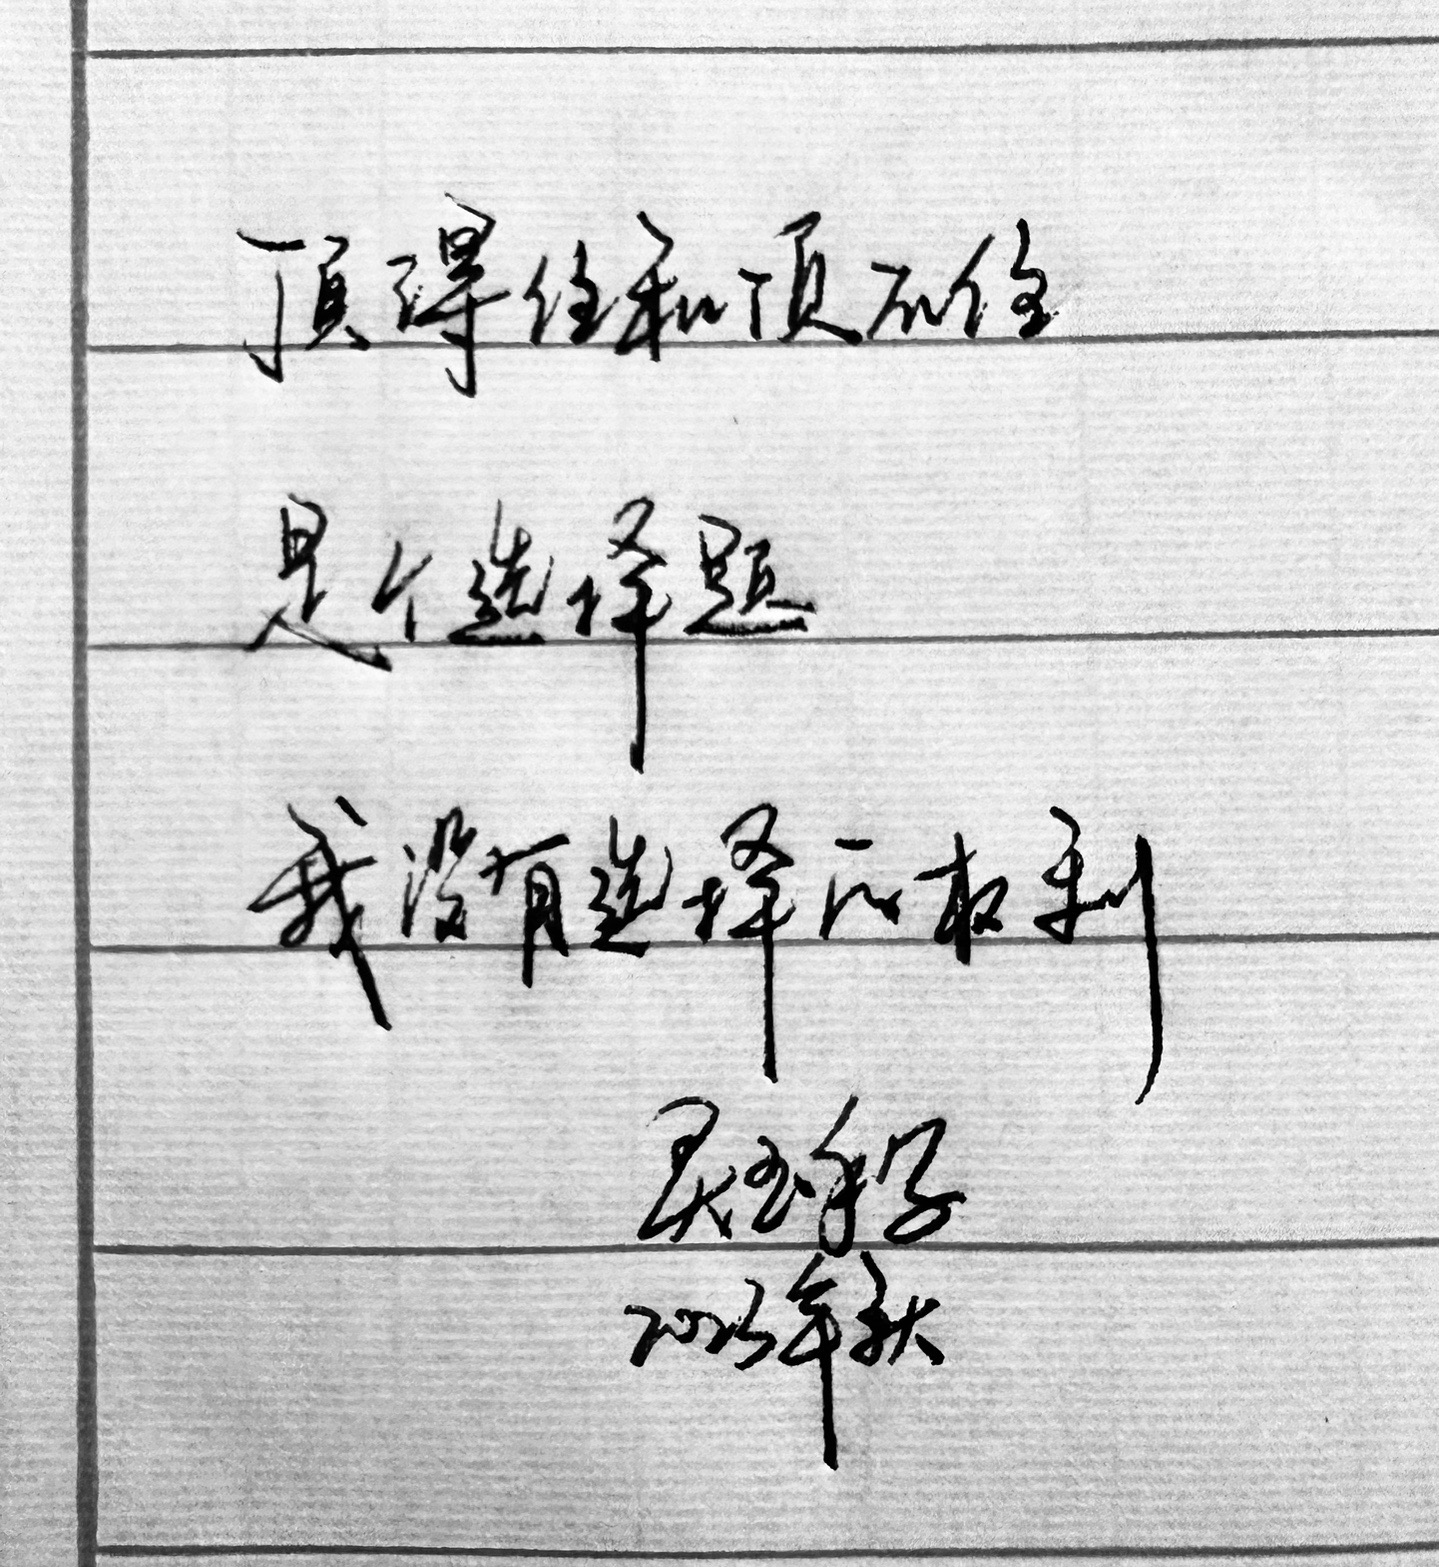 顶得住和顶不住
是个选择题
我没有选择的权利
2023年秋